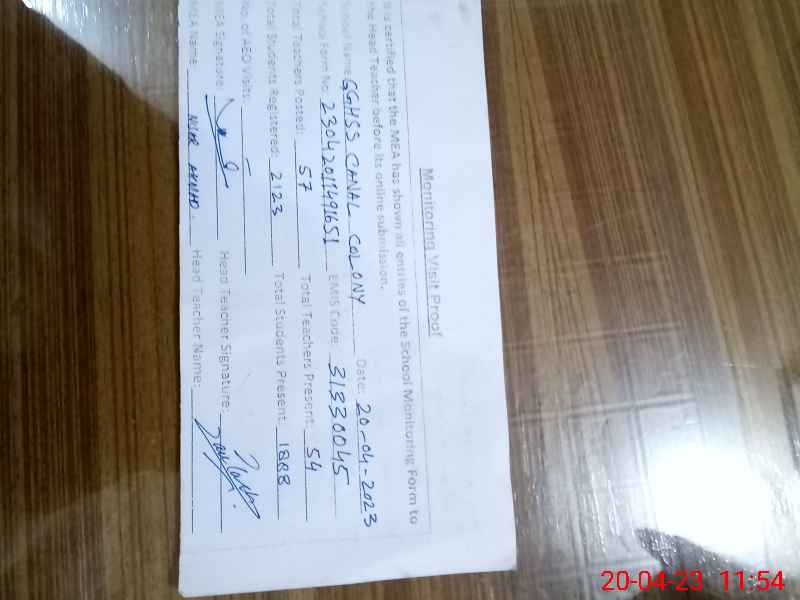 Monitoring Visit Proof
It is certified that the MEA has shown all entries of the School Monitoring Form to
the Head Teacher before its online submission.
School Name: GGHSS CANAL COLONY Date: 20-04-2023
School Form No: 23042011491651 EMIS Code: 31330045
Total Teachers Posted: 57 Total Teachers Present: 54
Total Students Registered: 2123 Total Students Present: 1888
No. of AEO Visits: -
MEA Signature: Head Teacher Signature:
MEA Name: AHMAD. Head Teacher Name:
20-04-23 11:54